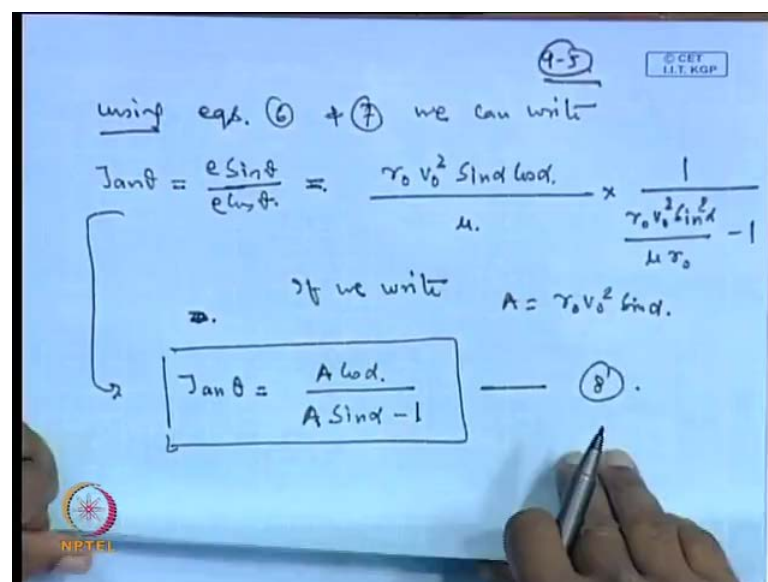 9-5
© CET
I.I.T. KGP
using eqs. ⑥ & ⑦ we can write
Tanθ = e Sinθ / e Cosθ. = r₀ v₀² Sinα Cosα. / μ. × 1 / (r₀ v₀² Sin²α / μ r₀ - 1)
If we write A = r₀ v₀² Sinα.
=.
Tan θ = A Cosα. / A Sinα - 1 —— ⑧'.
NPTEL